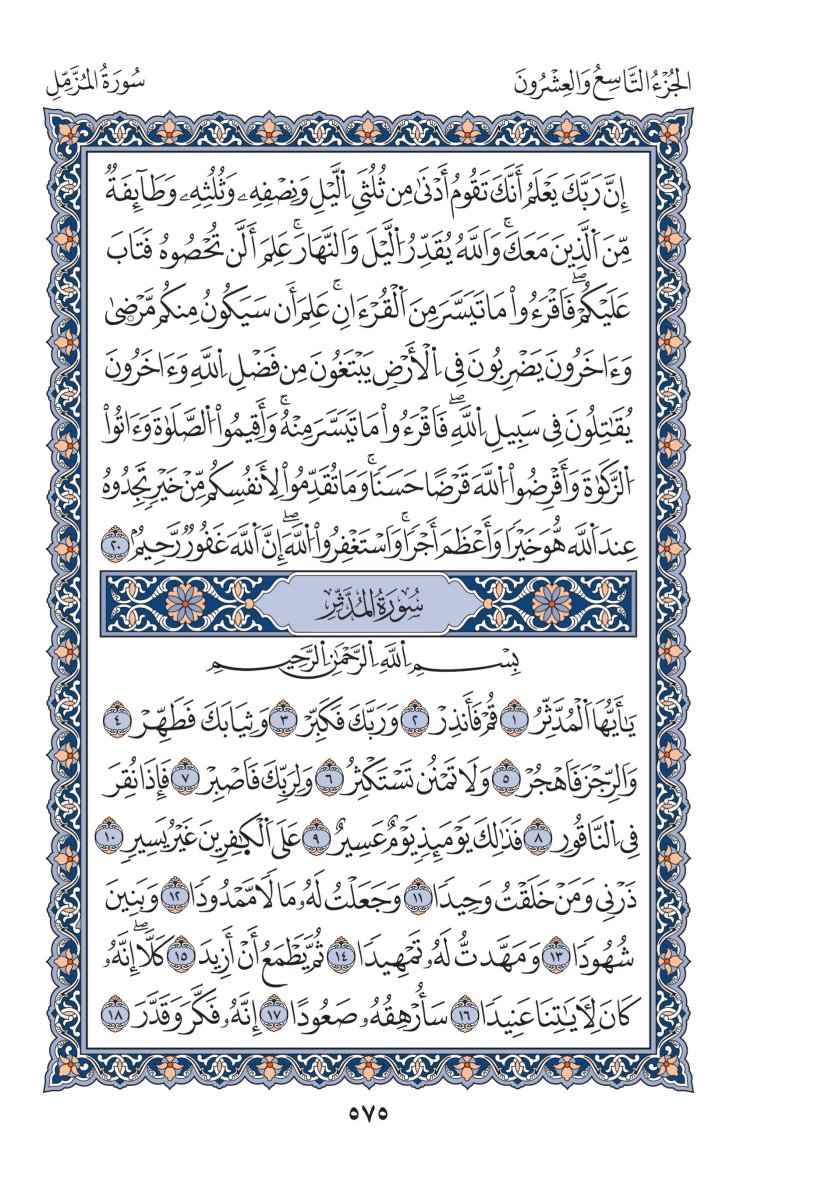 الجُزْءُ التَّاسِعُ وَالعِشْرُونَ
سُورَةُ المُزَّمِّل
إِنَّ رَبَّكَ يَعْلَمُ أَنَّكَ تَقُومُ أَدْنَىٰ مِن ثُلُثَيِ ٱلَّيْلِ وَنِصْفِهِۦ وَثُلُثِهِۦ وَطَآئِفَةٌ
مِّنَ ٱلَّذِينَ مَعَكَۚ وَٱللَّهُ يُقَدِّرُ ٱلَّيْلَ وَٱلنَّهَارَۚ عَلِمَ أَلَّن تُحْصُوهُ فَتَابَ
عَلَيْكُمْۖ فَٱقْرَءُوا۟ مَا تَيَسَّرَ مِنَ ٱلْقُرْءَانِۚ عَلِمَ أَن سَيَكُونُ مِنكُم مَّرْضَىٰ
وَءَاخَرُونَ يَضْرِبُونَ فِى ٱلْأَرْضِ يَبْتَغُونَ مِن فَضْلِ ٱللَّهِ وَءَاخَرُونَ
يُقَٰتِلُونَ فِى سَبِيلِ ٱللَّهِۖ فَٱقْرَءُوا۟ مَا تَيَسَّرَ مِنْهُۚ وَأَقِيمُوا۟ ٱلصَّلَوٰةَ وَءَاتُوا۟
ٱلزَّكَوٰةَ وَأَقْرِضُوا۟ ٱللَّهَ قَرْضًا حَسَنًاۚ وَمَا تُقَدِّمُوا۟ لِأَنفُسِكُم مِّنْ خَيْرٍ تَجِدُوهُ
عِندَ ٱللَّهِ هُوَ خَيْرًا وَأَعْظَمَ أَجْرًاۚ وَٱسْتَغْفِرُوا۟ ٱللَّهَۖ إِنَّ ٱللَّهَ غَفُورٌ رَّحِيمٌۢ ٢٠
سُورَةُ المُدَّثِّر
بِسْمِ ٱللَّهِ ٱلرَّحْمَٰنِ ٱلرَّحِيمِ
يَٰٓأَيُّهَا ٱلْمُدَّثِّرُ ١ قُمْ فَأَنذِرْ ٢ وَرَبَّكَ فَكَبِّرْ ٣ وَثِيَابَكَ فَطَهِّرْ ٤
وَٱلرُّجْزَ فَٱهْجُرْ ٥ وَلَا تَمْنُن تَسْتَكْثِرُ ٦ وَلِرَبِّكَ فَٱصْبِرْ ٧ فَإِذَا نُقِرَ
فِى ٱلنَّاقُورِ ٨ فَذَٰلِكَ يَوْمَئِذٍ يَوْمٌ عَسِيرٌ ٩ عَلَى ٱلْكَٰفِرِينَ غَيْرُ يَسِيرٍ ١٠
ذَرْنِى وَمَنْ خَلَقْتُ وَحِيدًا ١١ وَجَعَلْتُ لَهُۥ مَالًا مَّمْدُودًا ١٢ وَبَنِينَ
شُهُودًا ١٣ وَمَهَّدتُّ لَهُۥ تَمْهِيدًا ١٤ ثُمَّ يَطْمَعُ أَنْ أَزِيدَ ١٥ كَلَّآۖ إِنَّهُۥ
كَانَ لِءَايَٰتِنَا عَنِيدًا ١٦ سَأُرْهِقُهُۥ صَعُودًا ١٧ إِنَّهُۥ فَكَّرَ وَقَدَّرَ ١٨
٥٧٥